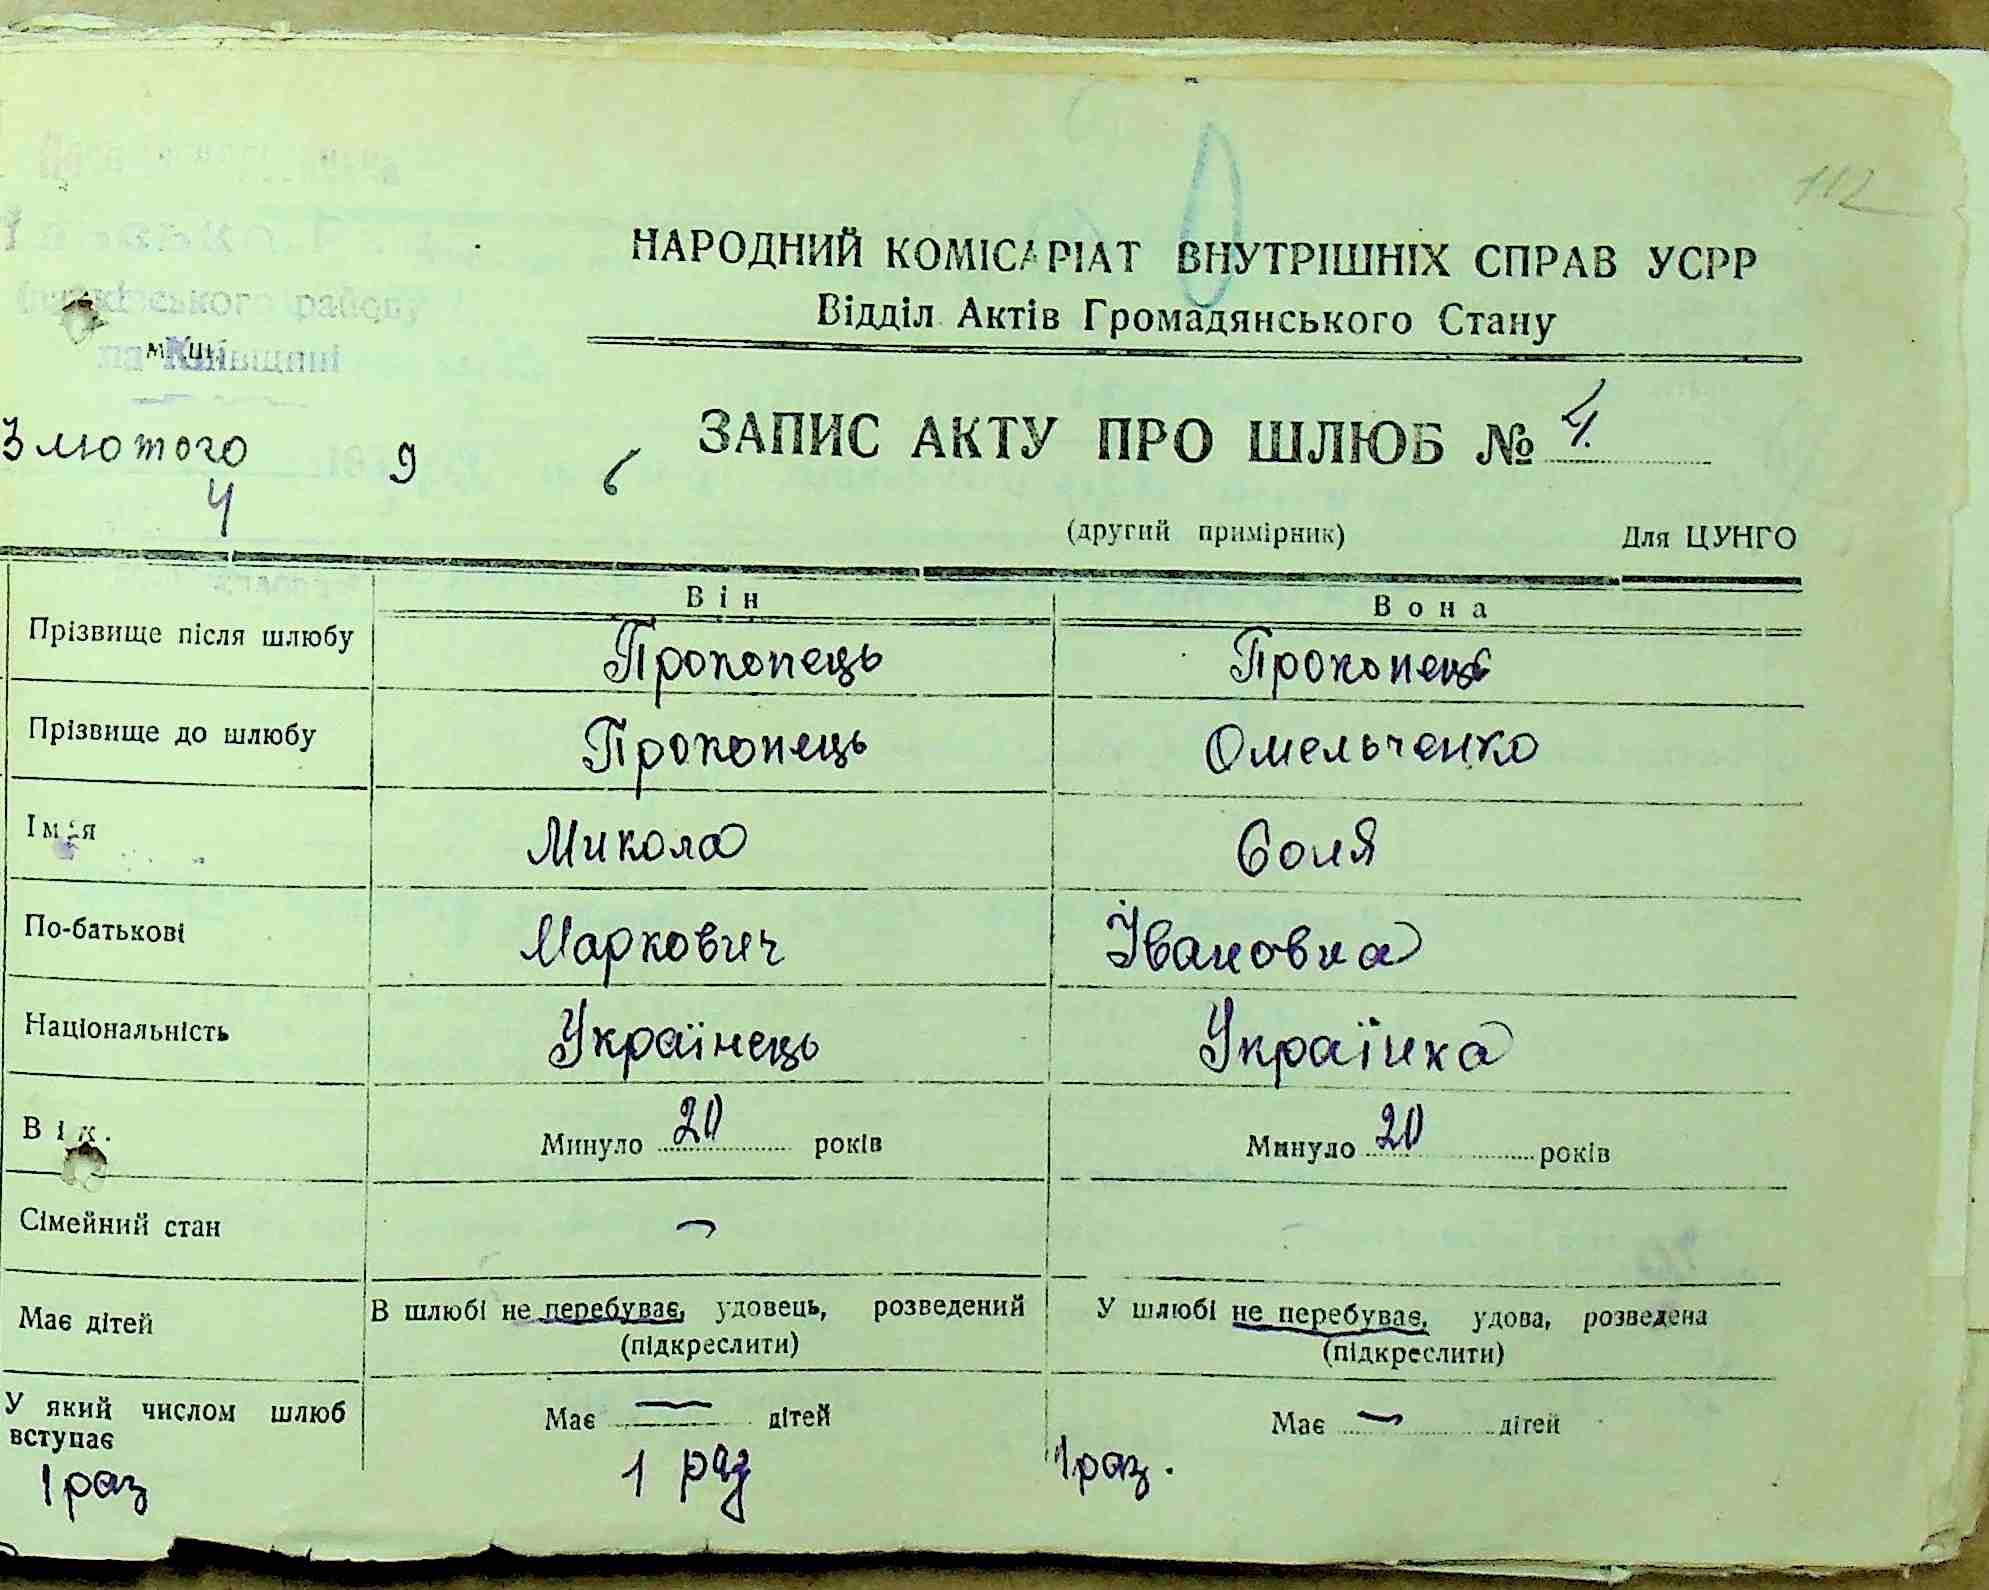 112
НАРОДНИЙ КОМІСАРІАТ ВНУТРІШНІХ СПРАВ УСРР
Відділ Актів Громадянського Стану
ського району
на Київщині
ЗАПИС АКТУ ПРО ШЛЮБ № 4.
3 лютого 9 6
4
(другий примірник) Для ЦУНГО
Він Вона
Прізвище після шлюбу Прокопець Прокопець
Прізвище до шлюбу Прокопець Омельченко
Ім'я Микола Соня
По-батькові Маркович Івановна
Національність Українець Українка
Вік. Минуло 20 років Минуло 20 років
Сімейний стан
Має дітей В шлюбі не перебуває, удовець, розведений У шлюбі не перебуває, удова, розведена
(підкреслити) (підкреслити)
У який числом шлюб вступає Має — дітей Має — дітей
1 раз 1 раз 1 раз.